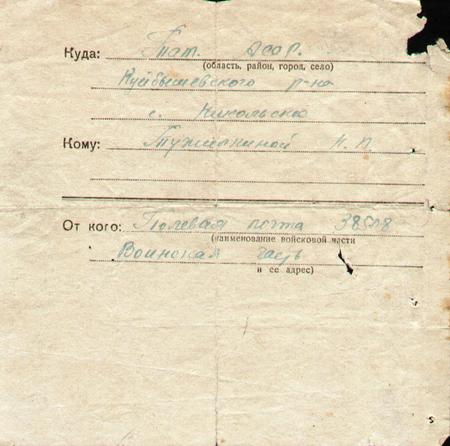 Куда: Тат. АССР.
(область, район, город, село)
Куйбышевского р-на
с. Никольско
Кому: Н. П.
От кого: Полевая почта
(наименование войсковой части
Воинская часть
и ее адрес)